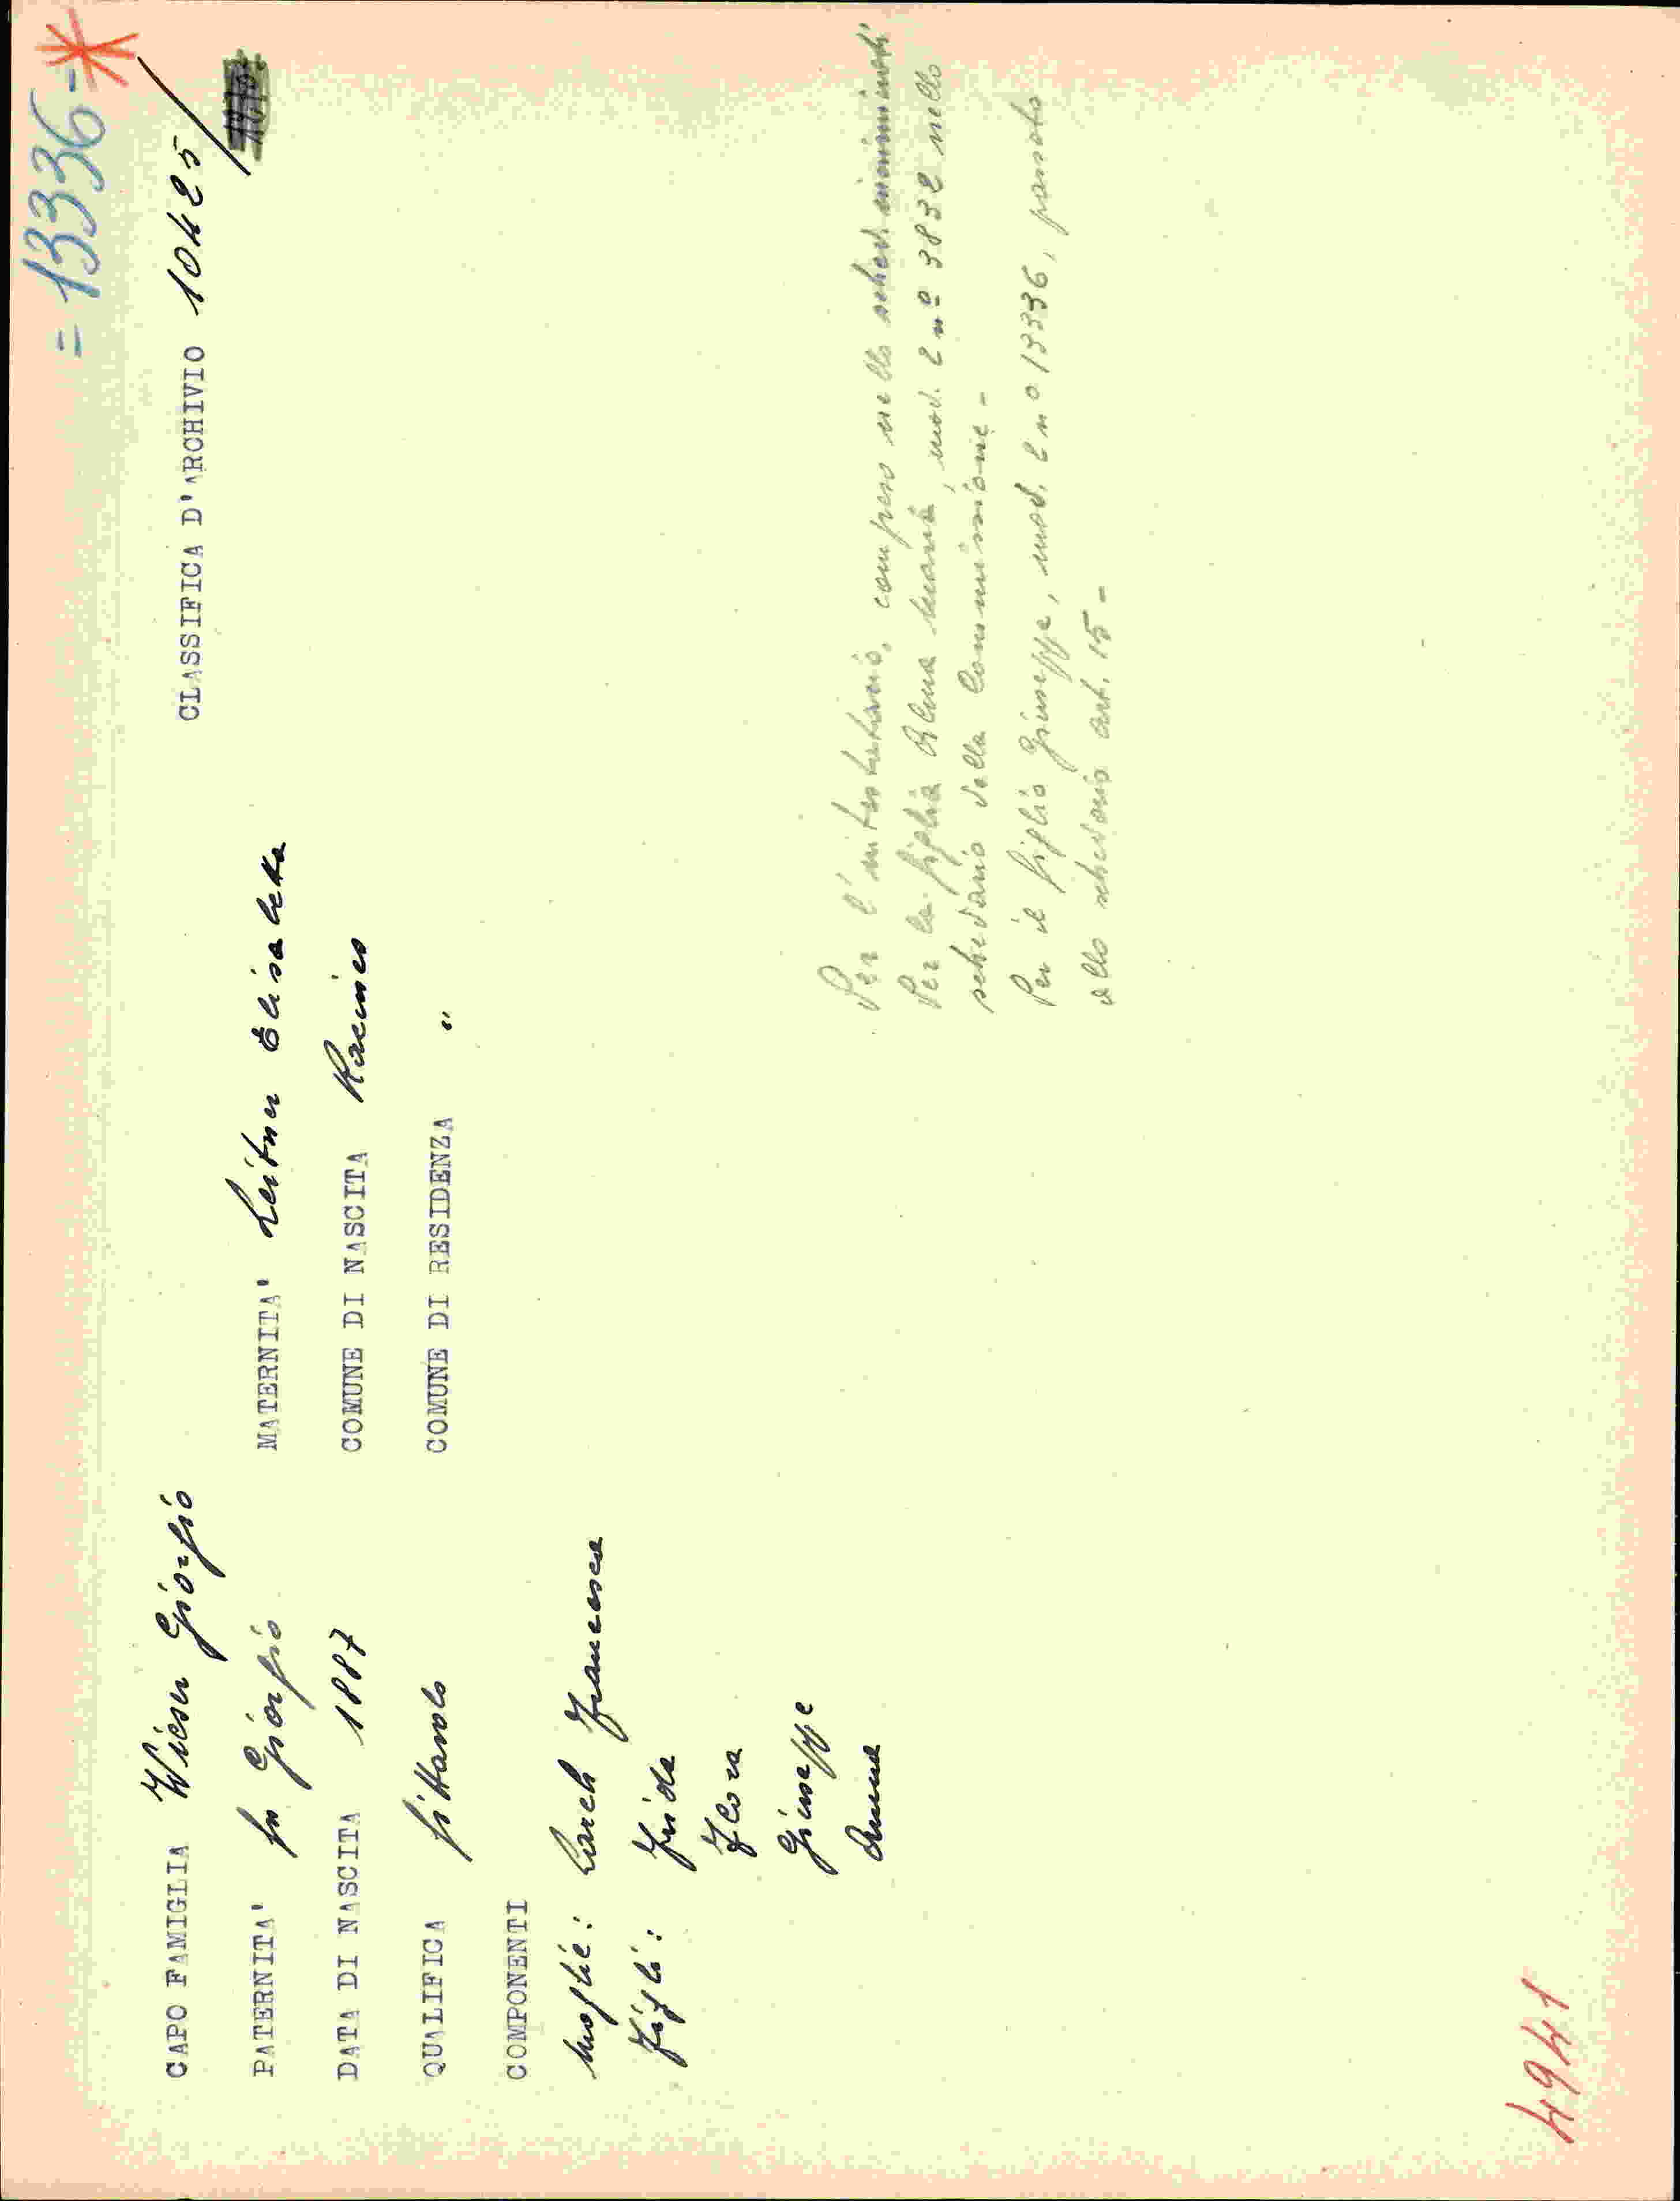 = 1336 =
CAPO FAMIGLIA Wieser Giorgio CLASSIFICA D'ARCHIVIO 10425/
PATERNITA' fu Giorgio MATERNITA' Leitner Elisabetta
DATA DI NASCITA 1887 COMUNE DI NASCITA Racines
QUALIFICA fittavolo COMUNE DI RESIDENZA "
COMPONENTI
moglie: Larch Francesca
Figli: Frida
Flora
Giuseppe
Anna
Per l'intestatario, compreso nello sched. minimindi
Per la figlia Anna Maria, mod. 2 nº 3832 nello
schedario della Commissione -
Per il figlio Giuseppe, mod. 2 nº 13336, passato
allo schedario art. 15 -
4941